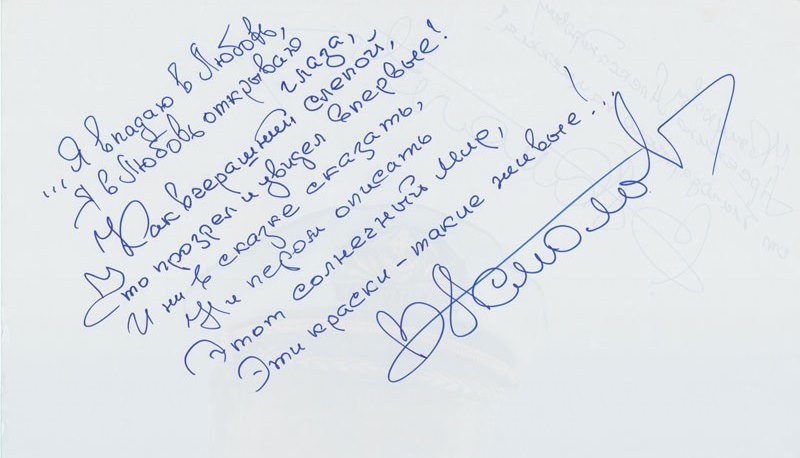 Я впадаю в Любовь,
"'Я в Любовь открываю
глаза,
Как вчерашний слепой,
Что прозрел и увидел впервые!
И ни в сказке сказать,
Ни пером описать
Этот солнечный мир,
Эти краски - такие живые!..